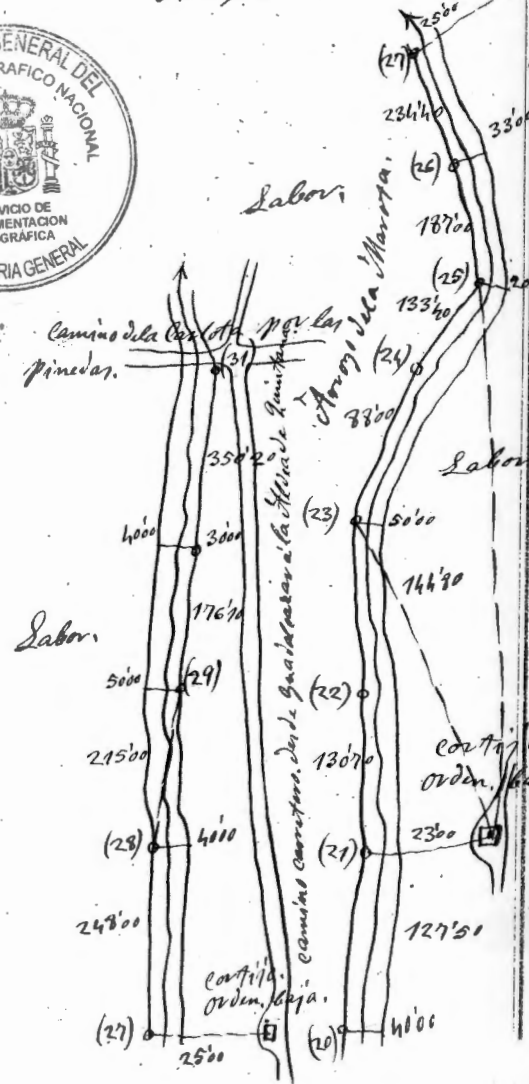 GENERAL DEL
GRAFICO NACIONAL
VICIO DE
MENTACION
GRÁFICA
RIA GENERAL
25'00
(27)
234'40
33'00
(26)
187'00
(25)
20
133'40
(24)
88'00
Labor.
Arroyo de la Marota.
Labor
(23)
50'00
144'80
(22)
130'70
cortij
orden. ba
(21)
23'00
127'50
(20)
40'00
camino de la Carlota por las
pinedas.
(31)
350'20
40'00
30'00
176'10
Labor.
50'00
(29)
215'00
(28)
40'00
248'00
cortijo.
orden. baja.
(27)
25'00
camino carretero. desde Guadalcazar á la Aldea de Quintana